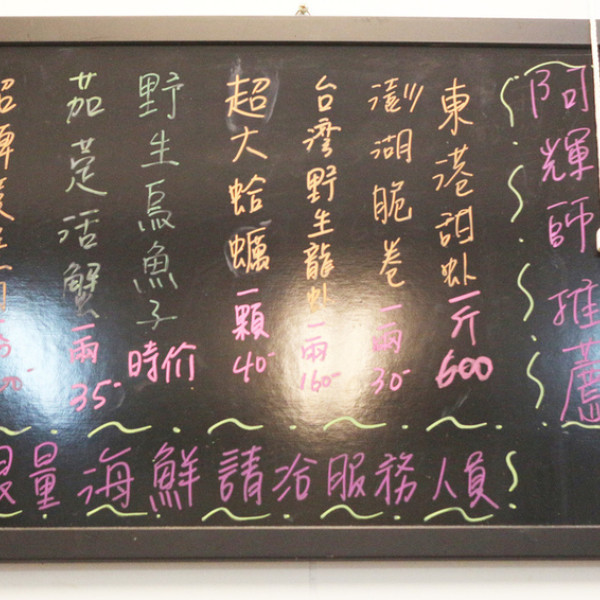 阿輝師推薦
東港甜虾一斤600
澎湖脆卷一兩30-
台湾野生龍虾一兩160-
超大蛤蠣一顆40-
野生烏魚子時价
茄萣活蟹一兩35-
限量海鮮請洽服務人員